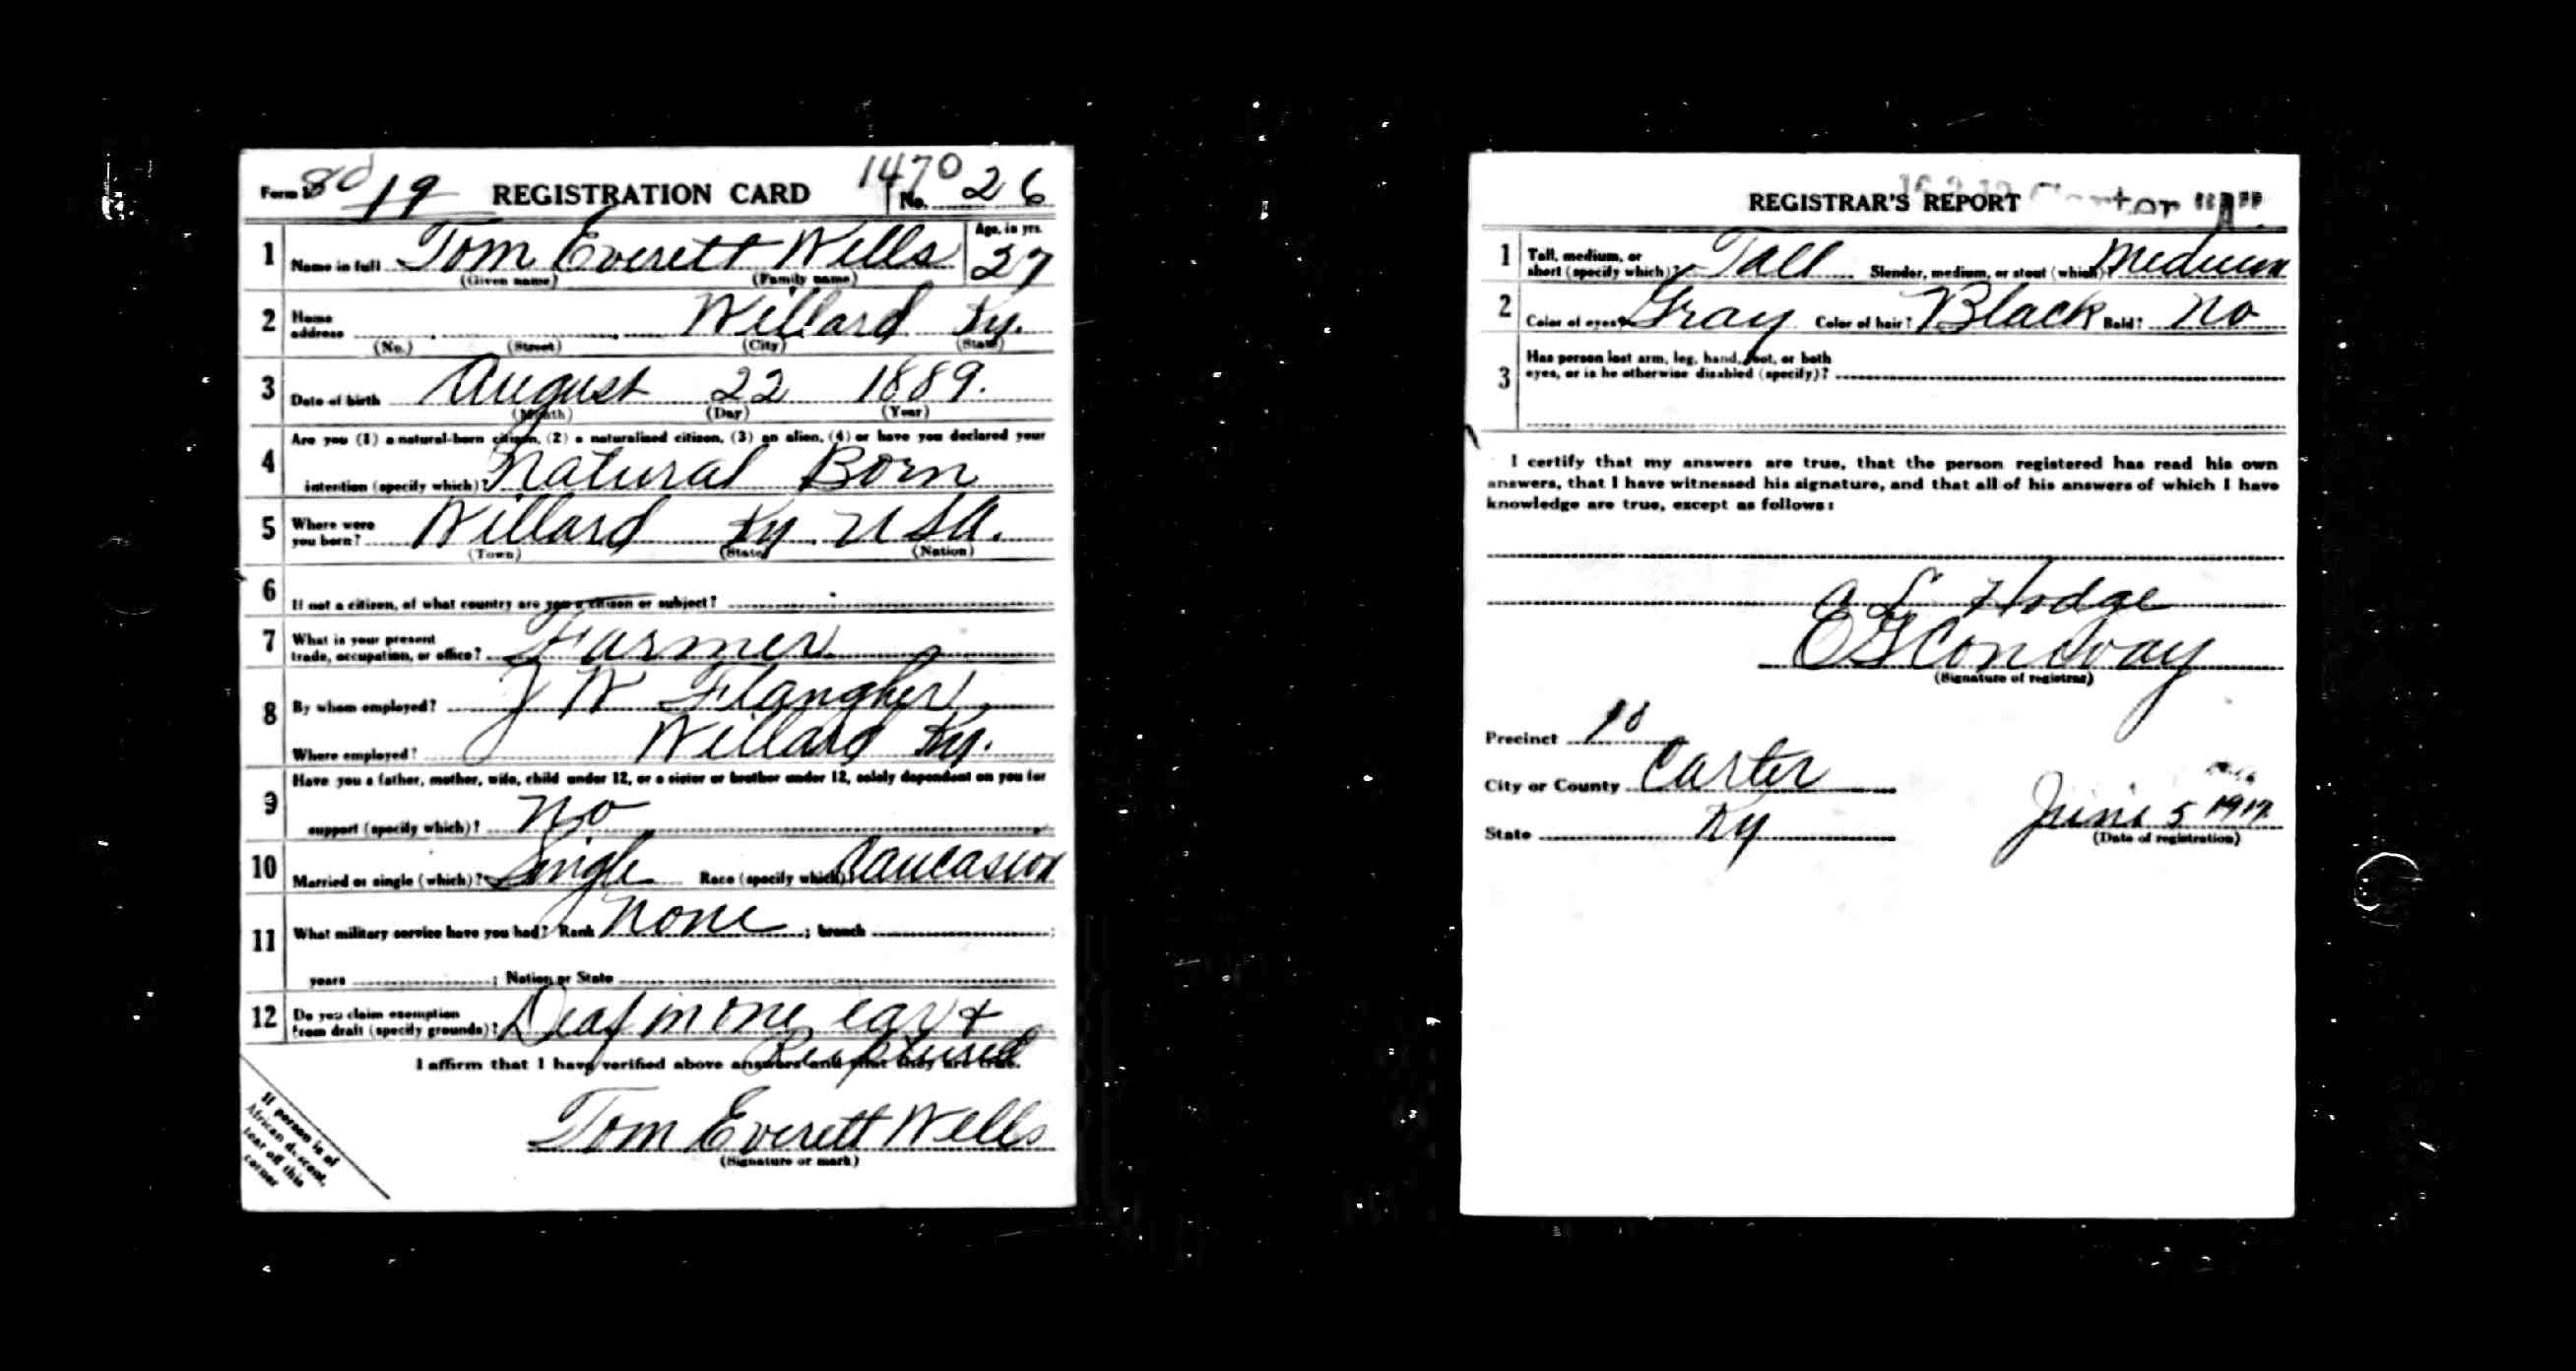 Form 1 80 19 REGISTRATION CARD 1470 No. 26
1 Name in full Tom Everett Wells Age, in yrs. 27
(Given name) (Family name)
2 Home address Willard Ky.
(No.) (Street) (City) (State)
3 Date of birth August 22 1889.
(Month) (Day) (Year)
4 Are you (1) a natural-born citizen, (2) a naturalized citizen, (3) an alien, (4) or have you declared your
intention (specify which)? Natural Born
5 Where were you born? Willard Ky. USA.
(Town) (State) (Nation)
6 If not a citizen, of what country are you a citizen or subject?
7 What is your present trade, occupation, or office? Farmer
8 By whom employed? J W Flangher
Where employed? Willard Ky.
9 Have you a father, mother, wife, child under 12, or a sister or brother under 12, solely dependent on you for
support (specify which)? No
10 Married or single (which)? Single Race (specify which) Caucasion
11 What military service have you had? Rank None ; branch ;
years ; Nation or State
12 Do you claim exemption from draft (specify grounds)? Deaf in one ear &
Ruptured
I affirm that I have verified above answers and that they are true.
Tom Everett Wells
(Signature or mark)
If person is of
African descent,
tear off this
corner
REGISTRAR'S REPORT
1 Tall, medium, or short (specify which)? Tall Slender, medium, or stout (which) Medium
2 Color of eyes? Gray Color of hair? Black Bald? No
3 Has person lost arm, leg, hand, foot, or both
eyes, or is he otherwise disabled (specify)?
I certify that my answers are true, that the person registered has read his own
answers, that I have witnessed his signature, and that all of his answers of which I have
knowledge are true, except as follows:
A L Hodge
E G Conway
(Signature of registrar)
Precinct 10
City or County Carter
State Ky
June 5 1917.
(Date of registration)